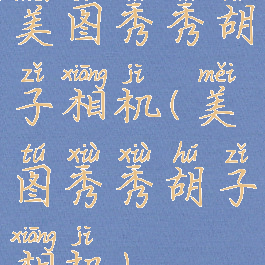 美图秀秀胡
zǐ xiāng jī měi
子相机(美
tú xiù xiù hú zǐ
图秀秀胡子
xiāng jī
相机)